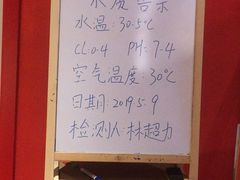 水质告示
水温:30.5℃
CL0.4 PH:7.4
空气温度:30℃
日期:2019.5.9
检测人:林超力